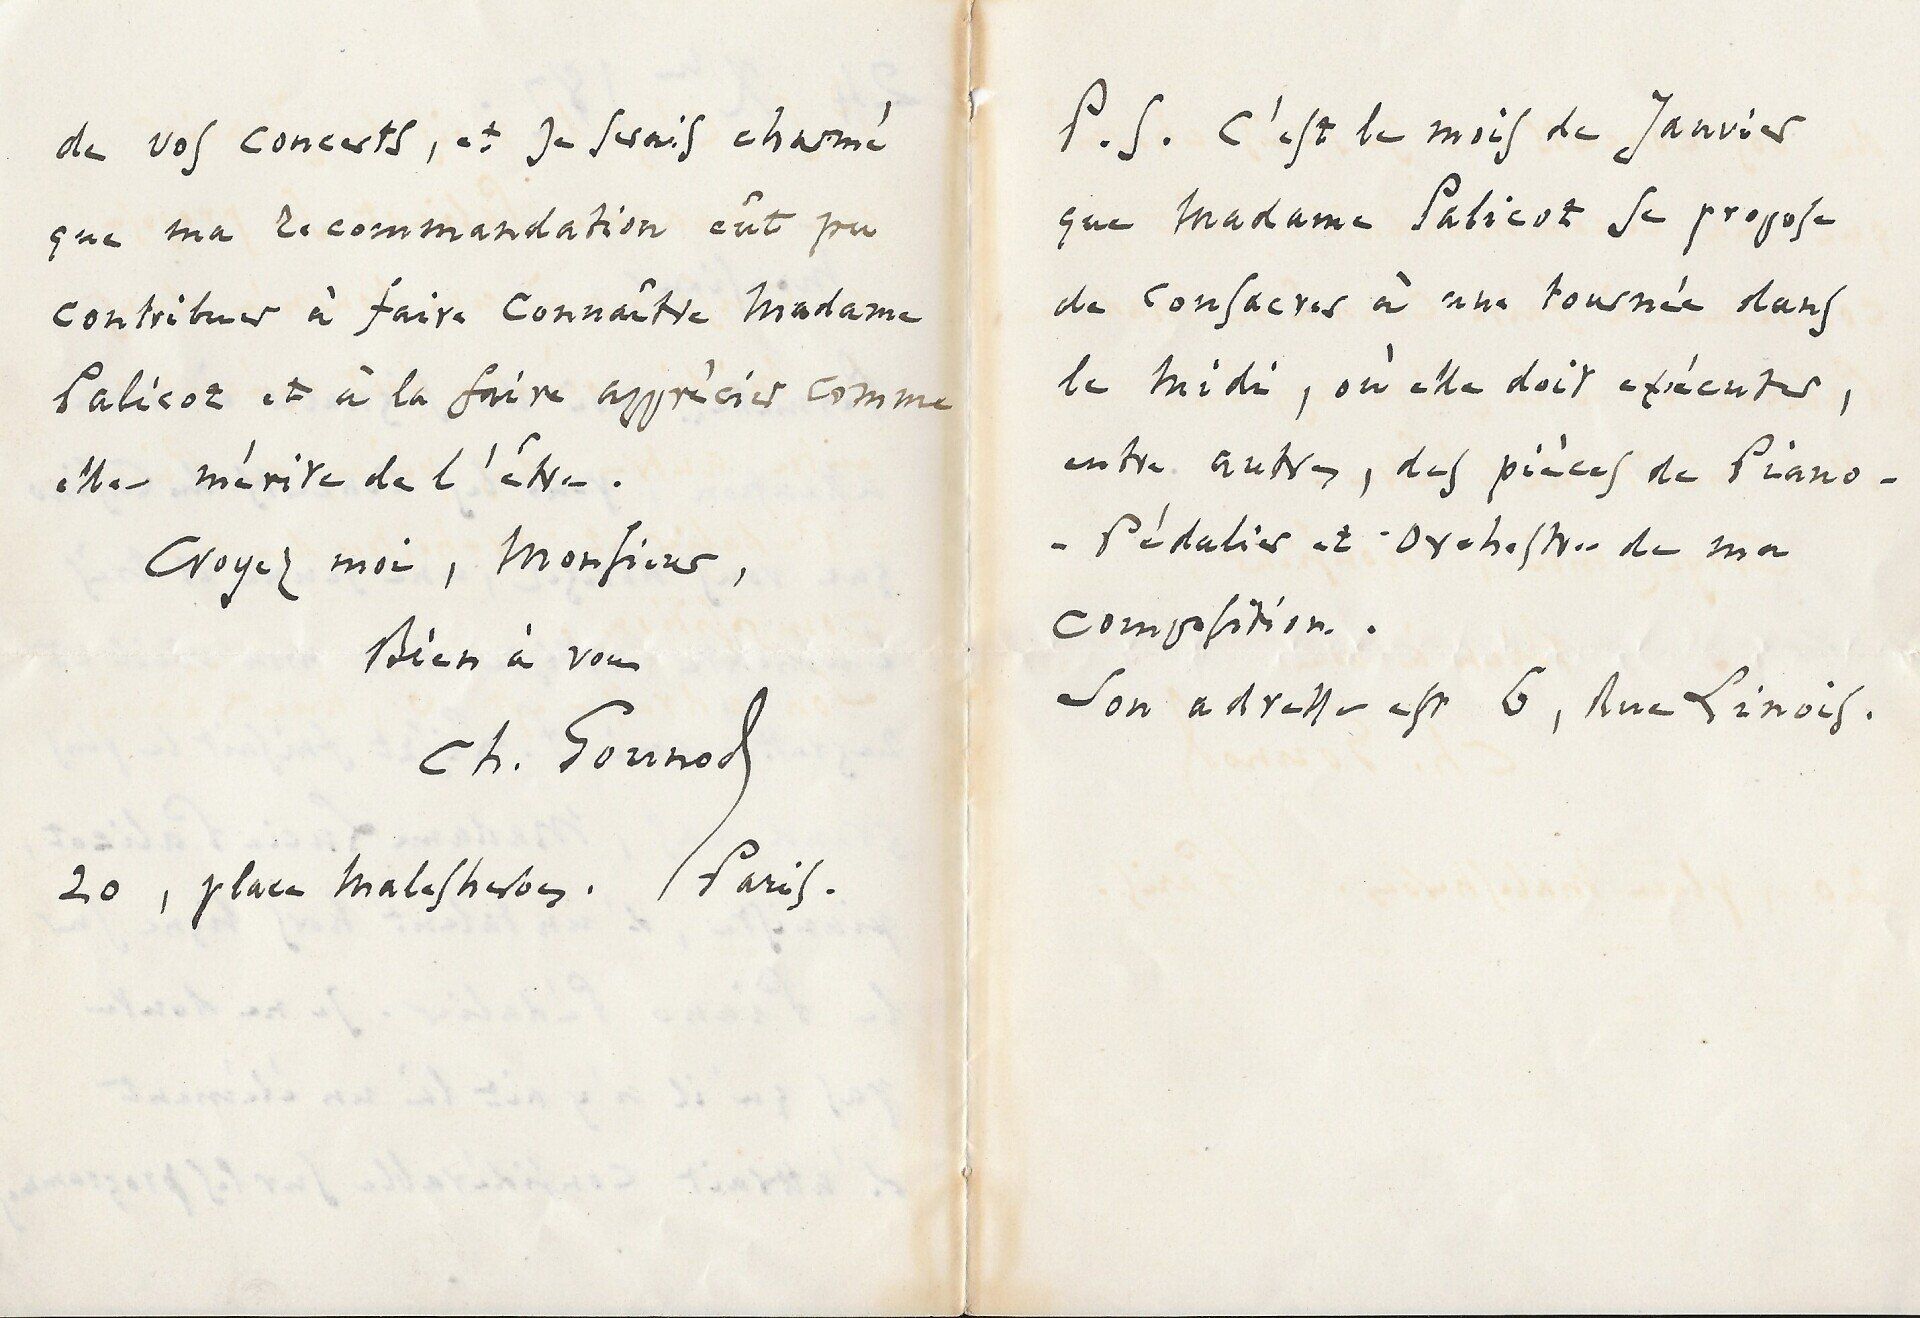 de vos concerts, et je serais charmé
que ma recommandation eût pu
contribuer à faire connaître Madame
Palicot et à la faire apprécier comme
elle mérite de l'être.
Croyez moi, Monsieur,
Bien à vous
Ch. Gounod
20, place Malesherbes. Paris.
P.S. C'est le mois de Janvier
que Madame Palicot se propose
de consacrer à une tournée dans
le Midi, où elle doit exécuter,
entre autres, des pièces de Piano-
-Pédalier et Orchestre de ma
composition.
Son adresse est 6, Rue Linois.